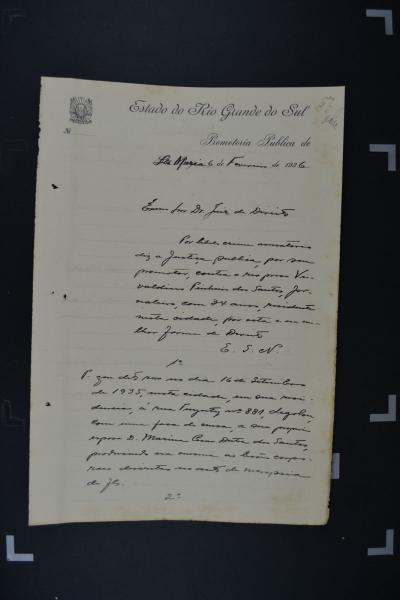 57
Estado do Rio Grande do Sul
Nº
Promotoria Publica de
Sta Maria 6 de Fevereiro de 1936
Exmo Snr Dr. Juiz de Direito
Por libelo crime accusatorio
diz a Justiça publica, por seu
promotor, contra o réo preso
Pinheiro dos Santos, Jor-
naleiro, com 34 anos, residente
nesta cidade, por esta e na me-
lhor forma de Direito
E. S. N.
1º
P. que dito réo no dia 16 de Setembro
de 1935, nesta cidade, em sua resi-
dencia, á rua nº 881, degolou,
com uma faca de mesa, a sua propria
esposa D. Marina dos Santos,
produzindo na mesma as lesões corpo-
raes descritas no auto de necropsia
de fls.
2º